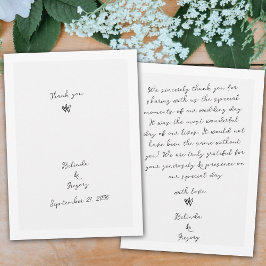 Thank you
Belinda
&
Gregory
September 21, 20
We sincerely thank you for
sharing with us the special
moments of our wedding day
It was the most wonderful
day of our lives. It would not
have been the same without
you! We are truly grateful for
your generosity & presence on
our special day
with love,
Belinda
&
Gregory